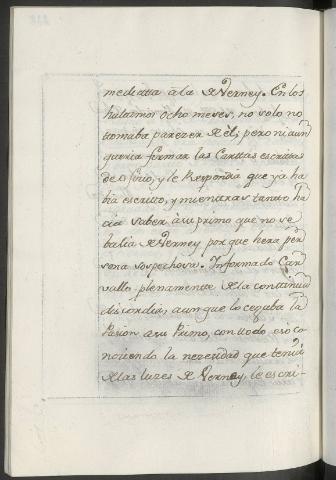 mediata à la de Verney. En los
hultimos ocho meses, no solo no
tomaba parezer de el; pero ni aun
queria firmar las Cartas escritas
de oficio, y le Respondia que ya ha
bia escrito, y mientras tanto ha
cia saber à su primo que no se
balia de Verney por que hera per
sona sospechosa. Informado Car
vallo plenamente de la continua
discordia, aunque lo cegaba la
Pasion a su Primo, con todo eso co
nociendo la nezesidad que tenia
de las luzes de Verney, le escri-